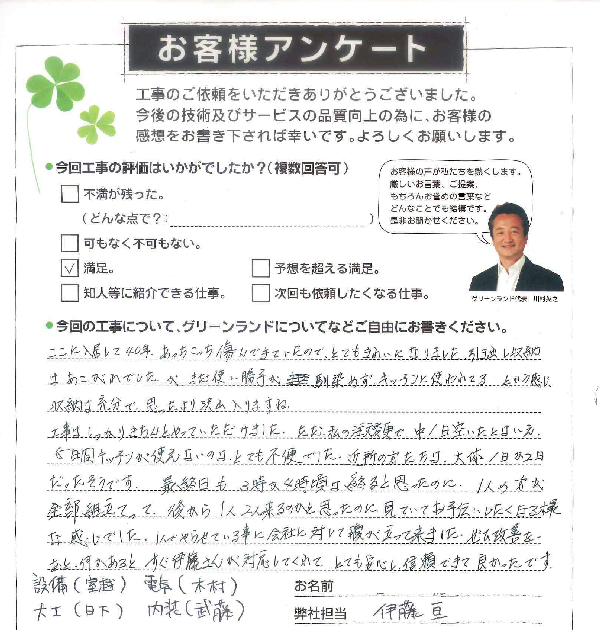 お客様アンケート
工事のご依頼をいただきありがとうございました。
今後の技術及びサービスの品質向上の為に、お客様の
感想をお書き下されば幸いです。よろしくお願いします。
● 今回工事の評価はいかがでしたか？（複数回答可）
不満が残った。
（どんな点で？： ）
可もなく不可もない。
✓ 満足。
予想を超える満足。
知人等に紹介できる仕事。
次回も依頼したくなる仕事。
お客様の声が私たちを動くします。
厳しいお言葉、ご提案、
もちろんお誉めの言葉など
どんなことでも結構です。
是非お聞かせください。
グリーンランド代表
● 今回の工事について、グリーンランドについてなどご自由にお書きください。
ここに入居して40年、あっちこっち傷んできていたので、とてもきれいになりました 引出し収納
はあこがれでしたが まだ使い勝手が 馴染めず、キッチンに使われてる という感じ
収納は充分で、思ったより沢山入りますね。
工事はしっかりきちんとやっていただけました。ただ私の注文変更で、中1日空いたとはいえ、
キッチンが使えないのは、とても不便でした。近所の方たちは、大体1日か2日
だったそうです。最終日も3時か4時頃は終ると思ったのに、1人の方が
全部組立てって、後から1人2人来るのかと思ったのに 見ていてお手伝いしたくなる様
な感じでした。1人でやらせている事に会社に対して腹が立って来ました。 改善を。
あと、何かあると すぐ伊藤さんが対応してくれて とても安心し信頼できて良かったです
設備（室越） 電気（木村）
大工（日下） 内装（武藤）
お名前
弊社担当 伊藤 亘